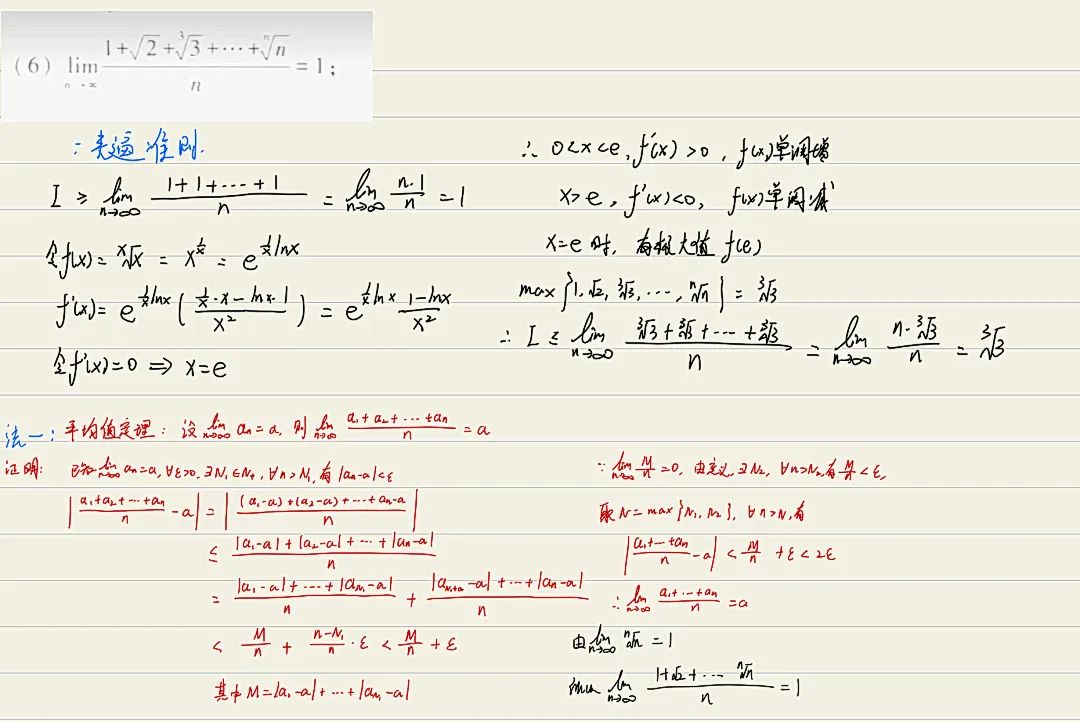 (6) lim_{n→∞} (1+√2+∛3+⋯+ⁿ√n)/n = 1;
准则.
I ≥ lim_{n→∞} (1+1+⋯+1)/n = lim_{n→∞} (n·1)/n = 1
令f(x) = ˣ√x = x^{1/x} = e^{(1/x)lnx}
f'(x) = e^{(1/x)lnx} ( (1/x·x − lnx·1)/x² ) = e^{(1/x)lnx} (1−lnx)/x²
令f'(x)=0 ⟹ x=e
∴ 0<x<e, f'(x)>0, f(x)单调增
x>e, f'(x)<0, f(x)单调减
x=e时, 有极大值 f(e)
max{1, √2, ∛3, ⋯, ⁿ√n} = ∛3
∴ I ≤ lim_{n→∞} (∛3+∛3+⋯+∛3)/n = lim_{n→∞} (n·∛3)/n = ∛3
法一: 平均值定理: 设 lim_{n→∞} aₙ=a, 则 lim_{n→∞} (a₁+a₂+⋯+aₙ)/n = a
证明: 已知 lim_{n→∞} aₙ=a, ∀ε>0, ∃N₁∈N₊, ∀n>N₁, 有 |aₙ−a|<ε
|(a₁+a₂+⋯+aₙ)/n − a| = |((a₁−a)+(a₂−a)+⋯+aₙ−a)/n|
≤ (|a₁−a|+|a₂−a|+⋯+|aₙ−a|)/n
= (|a₁−a|+⋯+|a_{N₁}−a|)/n + (|a_{N₁+1}−a|+⋯+|aₙ−a|)/n
< M/n + (n−N₁)/n·ε < M/n + ε
其中 M=|a₁−a|+⋯+|a_{N₁}−a|
∵ lim_{n→∞} M/n =0, 由定义, ∃N₂, ∀n>N₂, 有 M/n<ε,
取 N=max{N₁, N₂}, ∀n>N, 有
|(a₁+⋯+aₙ)/n − a| < M/n + ε < 2ε
∴ lim_{n→∞} (a₁+⋯+aₙ)/n = a
由 lim_{n→∞} ⁿ√n = 1
lim_{n→∞} (1+√2+⋯ ⁿ√n)/n = 1